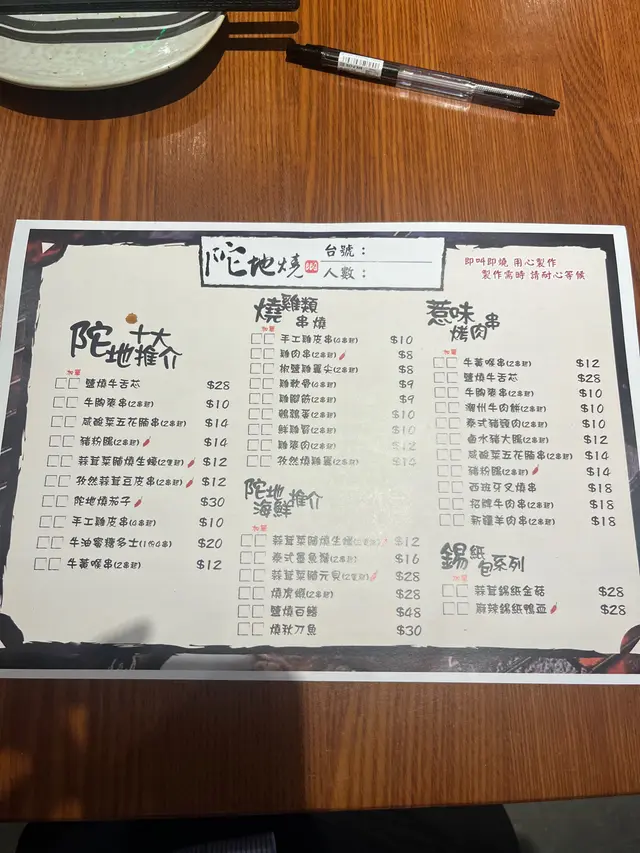 陀地燒
台號：
人數：
即叫即燒 用心製作
製作需時 請耐心等候
陀地十大推介
加單
鹽燒牛舌芯 $28
牛胸索串(2串起) $10
咸酸菜五花腩串(2串起) $14
豬粉腸(2串起) $14
蒜茸菜脯燒生蠔(2隻起) $12
孜然蒜茸豆皮串(2串起) $12
陀地燒茄子 $30
手工雞皮串(2串起) $10
牛油蜜糖多士(1份4串) $20
牛黃喉串(2串起) $12
燒雞類串燒
加單
手工雞皮串(2串起) $10
雞肉串(2串起) $8
椒鹽雞尖(2串起) $8
雞軟骨(2串起) $9
雞腳筋(2串起) $9
鵪鶉蛋(2串起) $10
鮮雞腎(2串起) $10
$12
孜然燒雞 $14
陀地海鮮推介
加單
蒜茸菜脯燒生蠔 $12
泰式墨魚 $16
蒜茸菜脯元貝(2隻起) $28
燒虎蝦(2串起) $28
鹽燒百鱔 $48
燒秋刀魚 $30
惹味烤肉串
加單
牛黃喉串(2串起) $12
鹽燒牛舌芯 $28
牛胸索串(2串起) $10
潮州牛肉餅(2串起) $10
泰式豬頸肉(2串起) $10
鹵水豬大腸(2串起) $12
咸酸菜五花腩串(2串起) $14
豬粉腸(2串起) $14
西班牙叉燒串 $18
招牌牛肉串(2串起) $18
新疆羊肉串(2串起) $18
錫紙包系列
加單
蒜茸錫紙金菇 $28
麻辣錫紙鴨血 $28